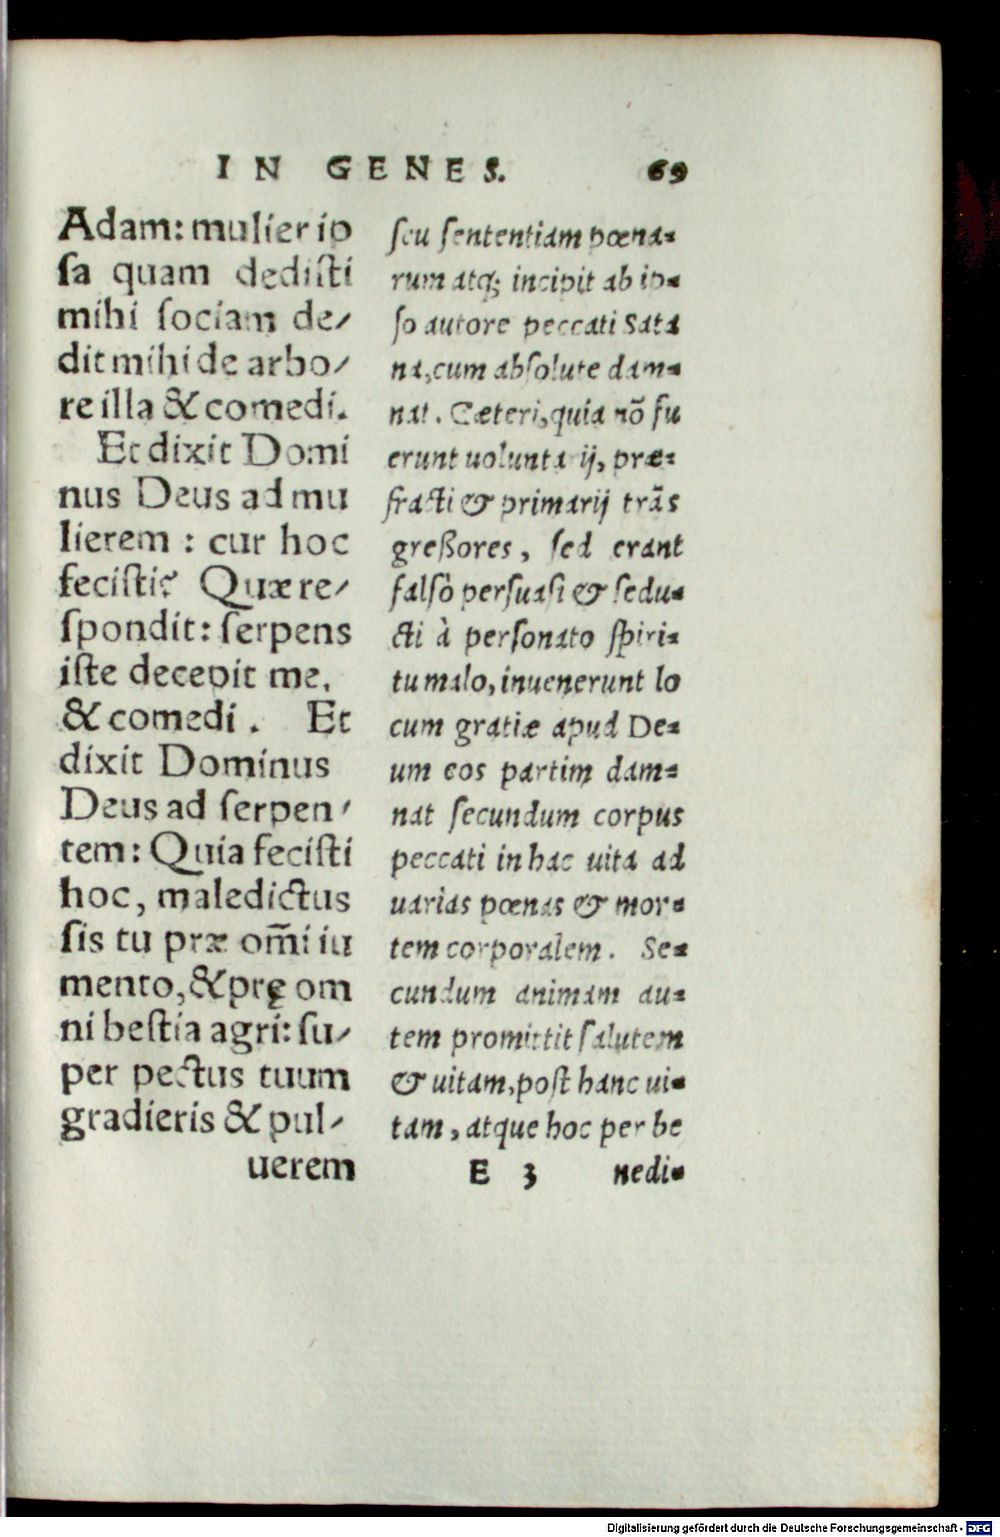 IN GENES. 69
Adam: mulier ip
sa quam dedisti
mihi sociam de-
dit mihi de arbo-
re illa & comedi.
Et dixit Domi
nus Deus ad mu
lierem : cur hoc
fecisti? Quæ re-
spondit: serpens
iste decepit me,
& comedi . Et
dixit Dominus
Deus ad serpen-
tem: Quia fecisti
hoc, maledictus
sis tu præ om̃i iu
mento, & prę om
ni bestia agri: su-
per pectus tuum
gradieris & pul-
uerem
seu sententiam pœna-
rum atq; incipit ab ip-
so autore peccati Sata
na, cum absolute dam-
nat . Cæteri, quia nõ fu
erunt uoluntarij, præ-
fracti & primarij trãs
greßores, sed erant
falsò persuasi & sedu-
cti à personato spiri-
tu malo, inuenerunt lo
cum gratiæ apud De-
um eos partim dam-
nat secundum corpus
peccati in hac uita ad
uarias pœnas & mor-
tem corporalem . Se-
cundum animam au-
tem promittit salutem
& uitam, post hanc ui-
tam , atque hoc per be
E 3 nedi-
Digitalisierung gefördert durch die Deutsche Forschungsgemeinschaft - DFG